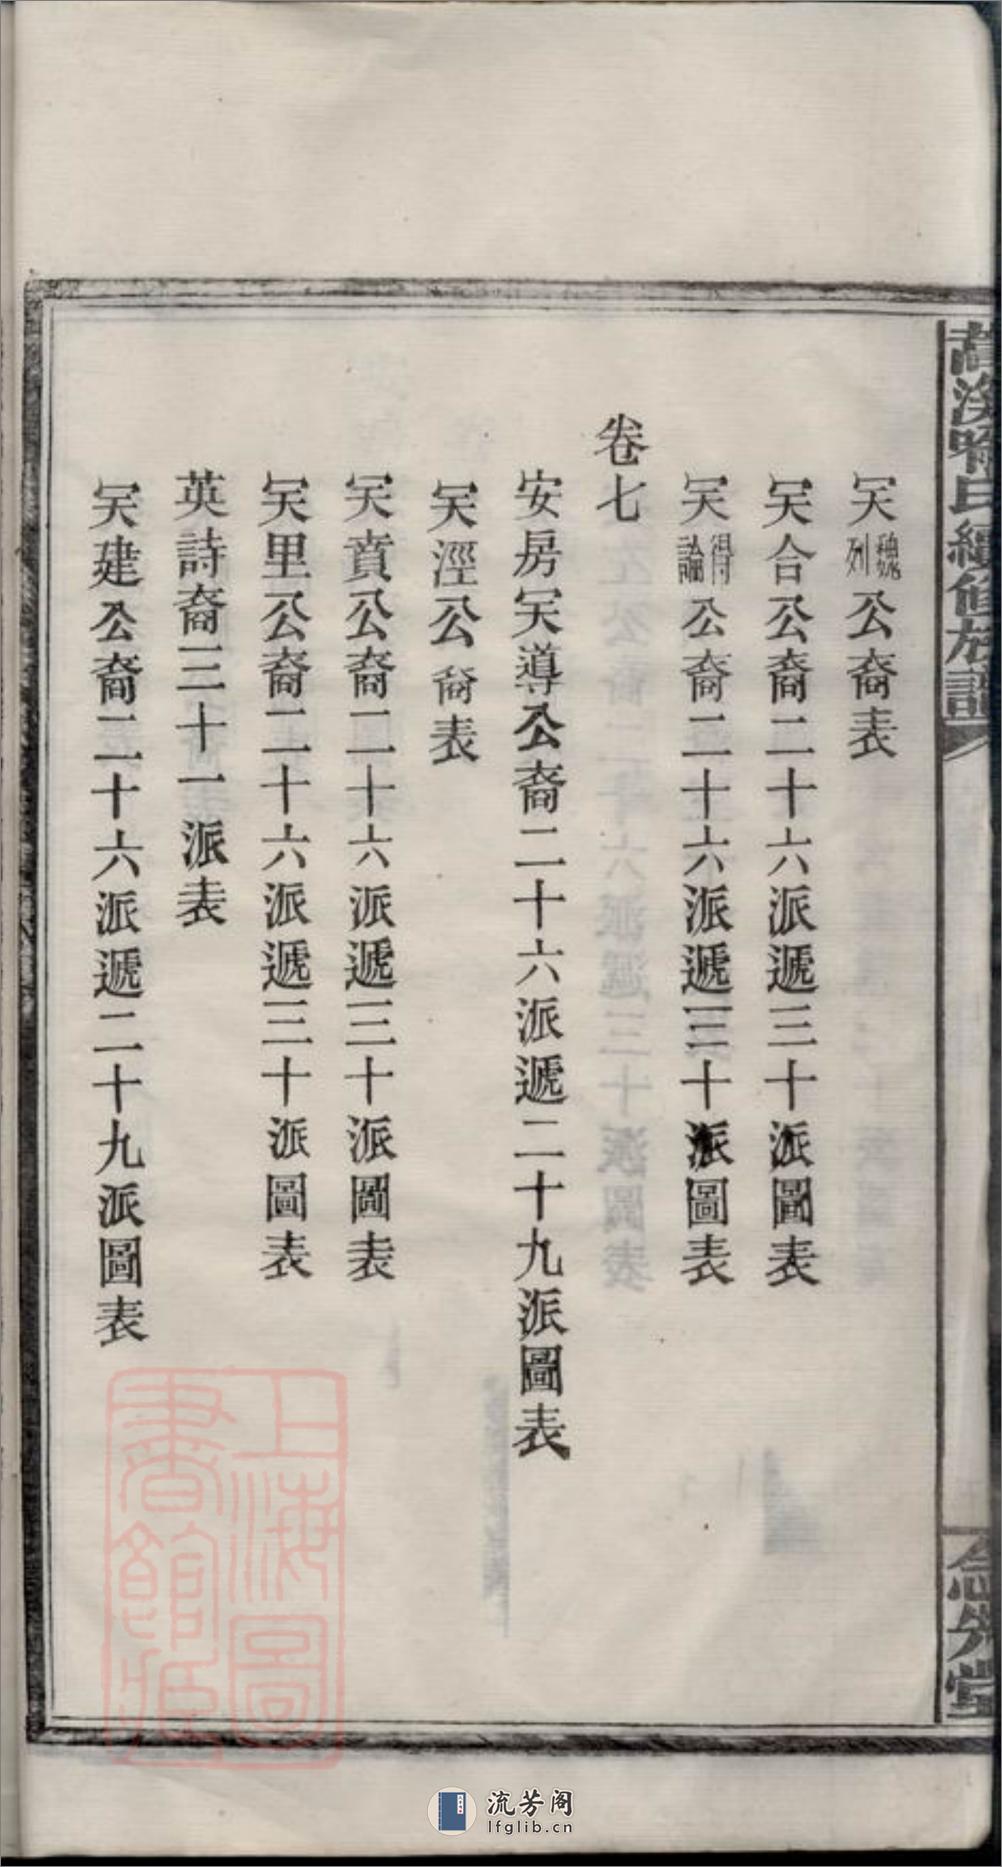 天魏列公裔表
天合公裔二十六派遞三十派圖表
天得論公裔二十六派遞三十派圖表
卷七
安房天導公裔二十六派遞二十九派圖表
天涇公裔表
天賁公裔二十六派遞三十派圖表
天里公裔二十六派遞三十派圖表
英詩裔三十一派表
天建公裔二十六派遞二十九派圖表
氏續修族譜
念先堂
上海圖書館藏
流芳阁
lfglib.cn